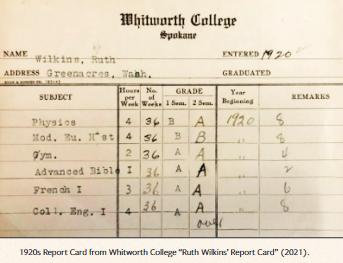 Whitworth College
Spokane
NAME Wilkins, Ruth ENTERED 1920
ADDRESS Greenacres, Wash. GRADUATED
SUBJECT Hours per Week No. of Weeks GRADE 1 Sem. 2 Sem. Year Beginning REMARKS
Physics 4 36 B A 1920 8
Mod. Eu. Hist 4 36 B B " 8
Gym. 2 36 A A " 4
Advanced Bible 1 36 A A " 2
French I 3 36 A A " 6
Coll. Eng. I 4 36 A A " 8
over
1920s Report Card from Whitworth College "Ruth Wilkins' Report Card" (2021).